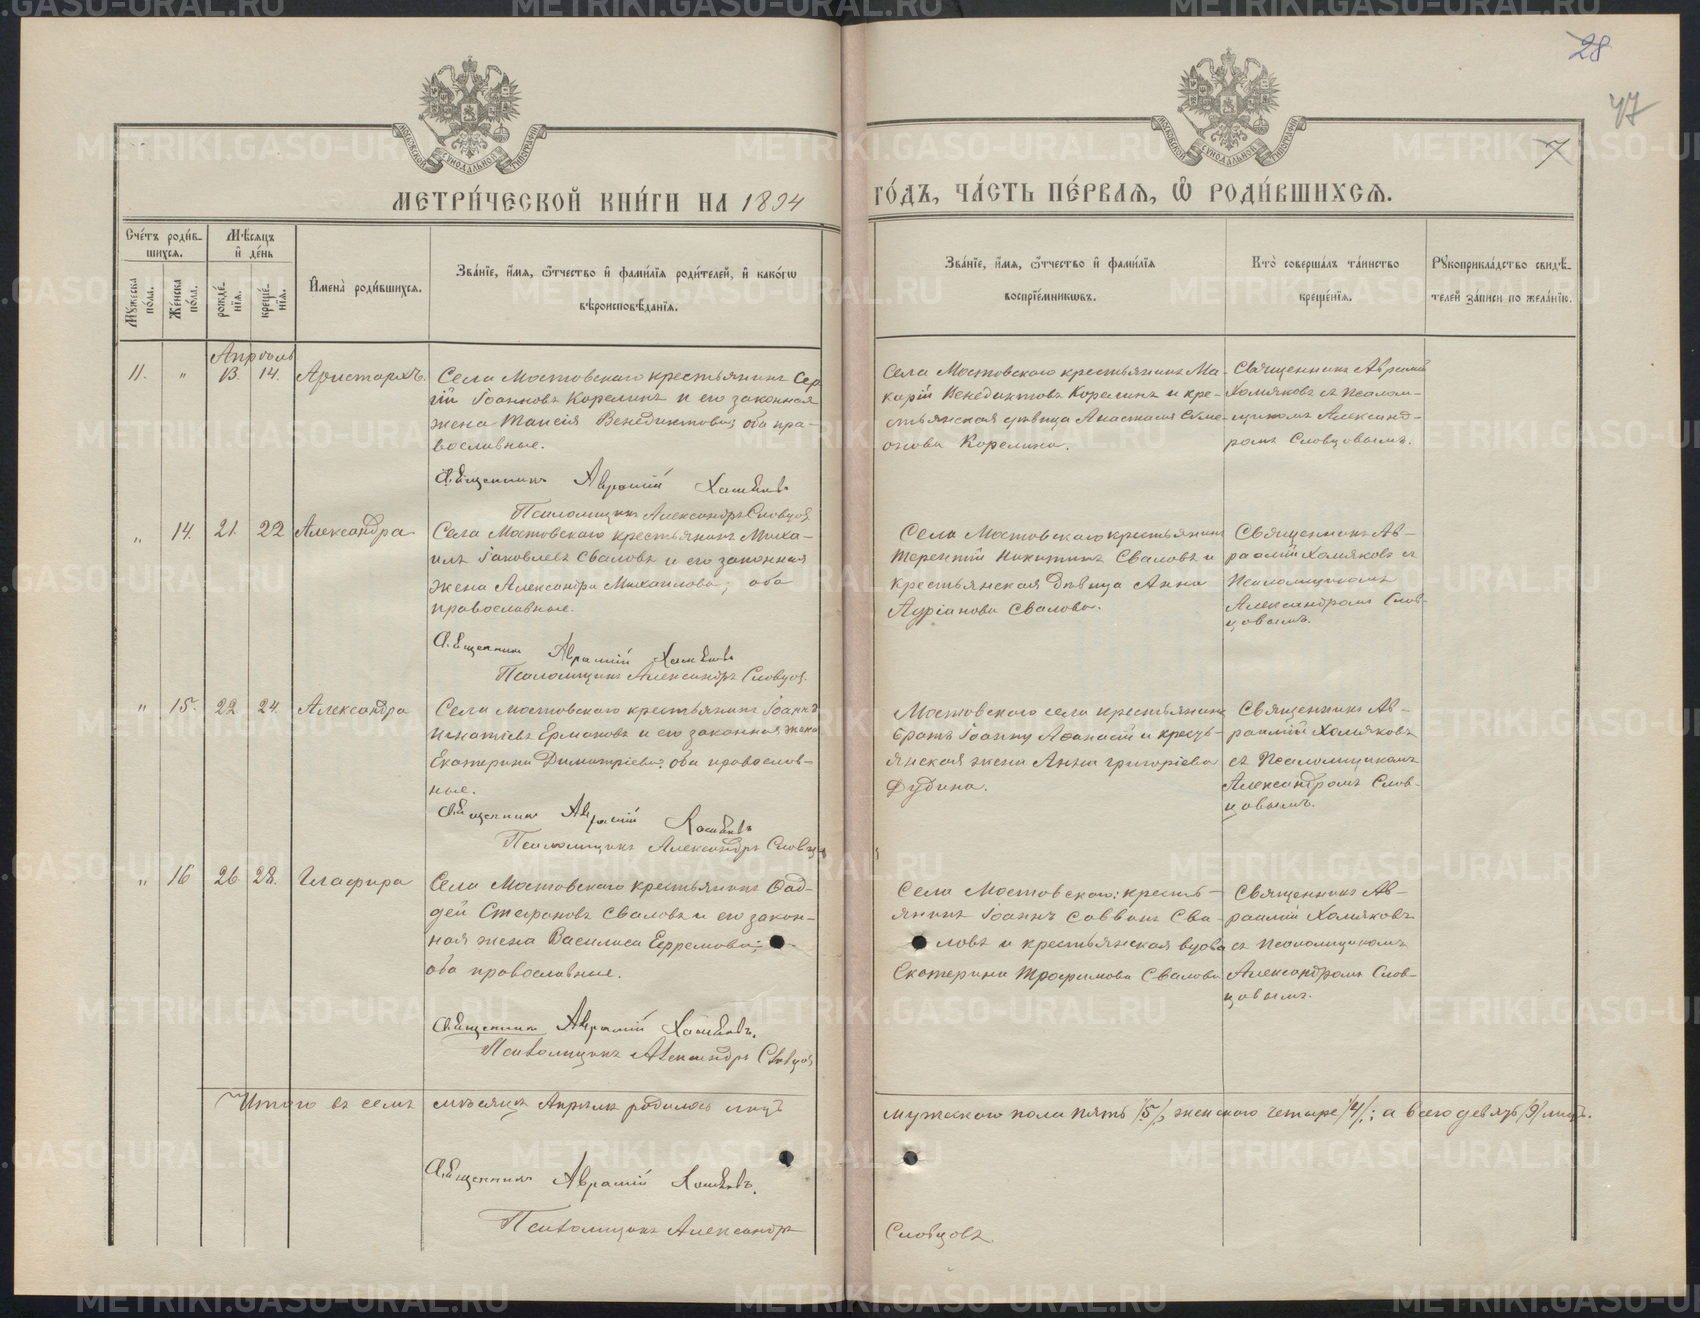 28
47
7
МОСКОВСКОЙ СѴНОДАЛЬНОЙ ТИПОГРАФІИ
МОСКОВСКОЙ СѴНОДАЛЬНОЙ ТИПОГРАФІИ
МЕТРИ́ЧЕСКОЙ КНИ́ГИ НА 1894 ГО́ДЪ, ЧА́СТЬ ПЕ́РВАЯ, Ѿ РОДИ́ВШИХСЯ.
Сче́тъ роди́вшихся.
Мꙋ́жеска по́ла.
Же́нска по́ла.
Мѣ́сяцъ и҆ де́нь
рожде́нїя.
креще́нїя.
И҆мена̀ роди́вшихся.
Зва́нїе, и҆́мя, ѻ҆́тчество и҆ фами́лїя роди́телей, и҆ како́гѡ вѣроисповѣ́данїя.
Зва́нїе, и҆́мя, ѻ҆́тчество и҆ фами́лїя воспрїе́мникѡвъ.
Кто̀ соверша́лъ та́инство креще́нїя.
Рꙋкоприкла́дство свидѣ́телей за́писи по жела́нїю.
Апрѣль
11. " 13. 14. Аристархъ.
Села Мостовскаго крестьянинъ Сер-
гій Іоанновъ Корелинъ и его законная
жена Таисія Венедиктова; оба пра-
вославные.
Священникъ Авраамій Хомяковъ
Псаломщикъ Александръ Словцов
Села Мостовскаго крестьянинъ Ма-
карій Венедиктовъ Корелинъ и кре-
стьянская дѣвица Анастасія Симе-
онова Корелина.
Священникъ Авраамій
Хомяковъ съ Псалом-
щикомъ Александ-
ромъ Словцовымъ.
" 14. 21. 22 Александра
Села Мостовскаго крестьянинъ Миха-
илъ Іаковлевъ Сваловъ и его законная
жена Александра Михаилова; оба
православные.
Священникъ Авраамій Хомяковъ
Псаломщикъ Александръ Словцов.
Села Мостовскаго крестьянинъ
Терентій Никитинъ Сваловъ и
крестьянская дѣвица Анна
Свалова.
Священникъ Ав-
раамій Хомяковъ и
Псаломщикомъ
Александромъ Слов-
цовымъ.
" 15. 22. 24. Александра
Села Мостовскаго крестьянинъ Іоаннъ
Игнатіевъ Ермаковъ и его законная жена
Екатерина Димитріева; оба православ-
ные.
Священникъ Авраамій Хомяковъ
Псаломщикъ Александръ Словцо
Мостовского села крестьянинъ
братъ Іоанну Аѳанасій и кресть-
янская жена Анна Григоріева
Фудина.
Священникъ Ав-
раамій Хомяковъ
съ Псаломщикомъ
Александромъ Слов-
цовымъ.
" 16 26 28. Глафира
Села Мостовскаго крестьянинъ Ѳад-
дей Стефановъ Сваловъ и его закон-
ная жена Василиса Ефремова;
оба православные.
Священникъ Авраамій Хомяковъ.
Псаломщикъ Александръ Словцов
Села Мостовскаго: кресть-
янинъ Іоаннъ Саввинъ Сва-
ловъ и крестьянская вдова
Екатерина Трофимова Свалова
Священникъ Ав-
раамій Хомяковъ
съ Псаломщикомъ
Александромъ Слов-
цовымъ.
Итого въ семъ мѣсяцѣ Апрѣлѣ родилось лицъ мужескаго пола пять /5/, женскаго четыре /4/; а всего девять /9/ лицъ.
Священникъ Авраамій Хомяковъ.
Псаломщикъ Александръ Словцовъ.